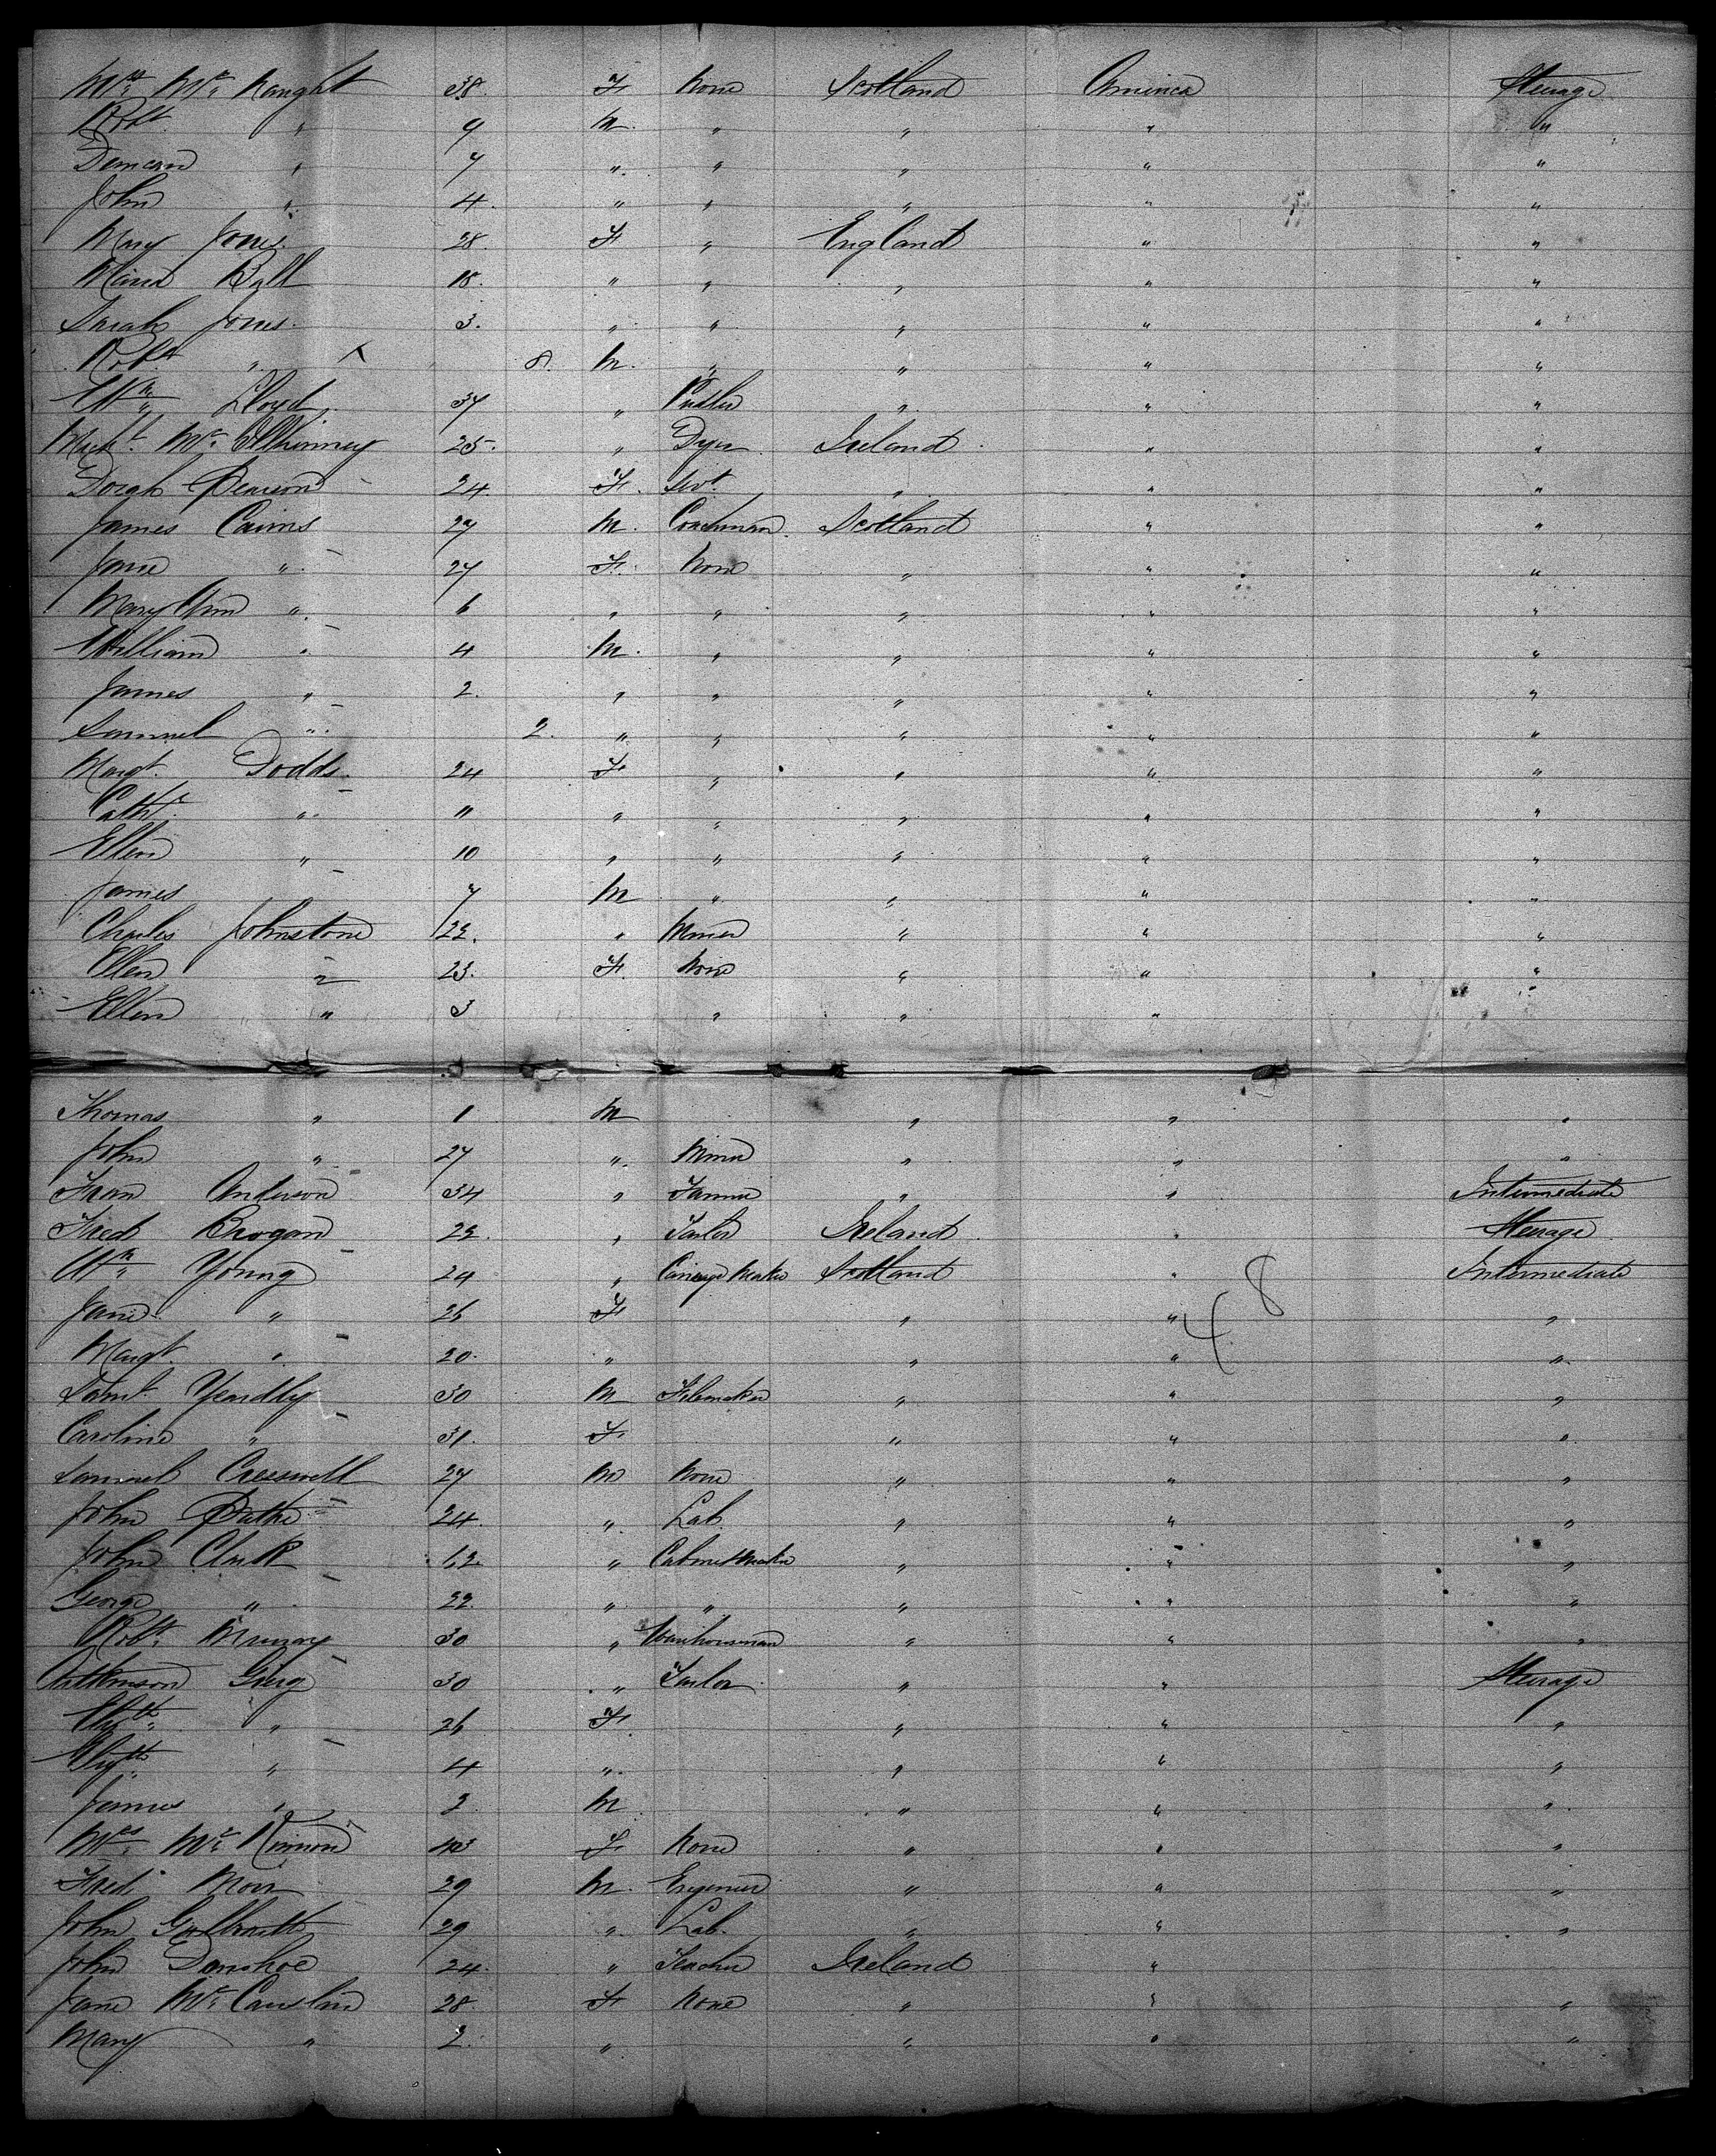 Mrs. Mc. Naught 38 F None Scotland America Steerage
Robt. " 9 M. " " " "
Duncan " 7 " " " " "
John " 4. " " " " "
Mary Jones. 28. F " England " "
Maria Ball 18. " " " " "
Sarah Jones. 3. " " " " "
Robt. " 8. M. " " " "
Wm. Lloyd 37 " Pudler " " "
Michl. Mc. Ilhinney 25. " Dyer Ireland " "
Dorah Pearson 24. F. Servt. " " "
James Cairns 27 M. Coachman. Scotland " "
Jane " 27 F. None " " "
Mary Ann " 6 " " " " "
William " 4 M. " " " "
James " 2. " " " " "
Samuel " 2. " " " " "
Margt. Dodds. 24 F " " " "
Cathe. " 11 " " " " "
Ellen " 10 " " " " "
James 7 M " " " "
Charles Johnstone 22. " Miner " " "
Ellen " 23. F. None " " "
Ellen " 3 " " "
Thomas " 1 M " " "
John " 27 " Miner " " "
Fran Anderson 34 " " " Intermediate
Fredk Brogan 22. " Tailor Ireland " Steerage
Wm. Young 24 " Carriage Maker Scotland " Intermediate
Jane " 26 F " " "
8
4
Margt. " 20. " " " "
Saml. Yeardly 30 M Filemaker " " "
Caroline " 31. F " " "
Samuel Cresswell 27 M None " " "
John 24. " Lab. " " "
John Clark 62. " Cabinetmaker " " "
George " 22. " " " " "
Robt. Murray 30 " Warehouseman " " "
Greig 30 " Tailor " " Steerage
" 26 F. " " "
" 4 " " " "
James " 2 M " " "
Mrs. Mc. Kinnon F None " " "
Fredk Moir 29 M. Engineer " " "
John Galbraith 29 " Lab. " " "
John Donohoe 24. " Teacher Ireland "
Jane Mc. Causlin 28. F None " " "
Mary " 2. " " " "